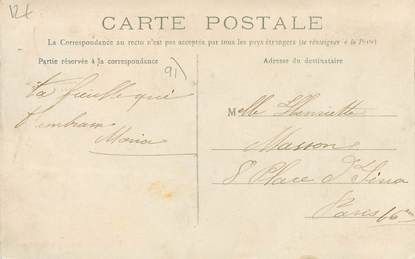 12f
CARTE POSTALE
La Correspondance au recto n'est pas acceptée par tous les pays étrangers (se renseigner à la Poste)
Partie réservée à la correspondance
91)
Adresse du destinataire
ta fieulle qui
t'embrasse
Maria
Melle Henriette
Masson
8 Place d'Iéna
Paris 16me